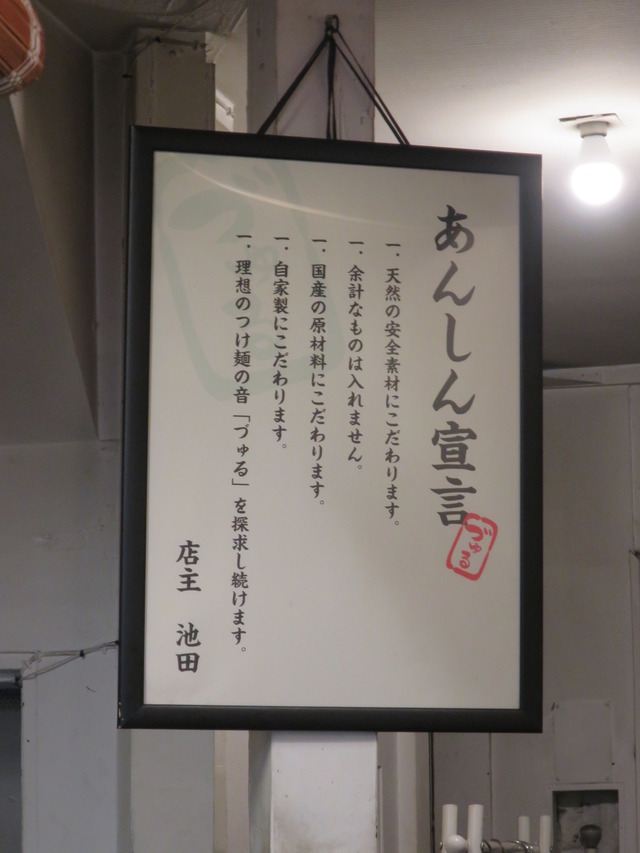 あんしん宣言
づゅる
一．天然の安全素材にこだわります。
一．余計なものは入れません。
一．国産の原材料にこだわります。
一．自家製にこだわります。
一．理想のつけ麺の音「づゅる」を探求し続けます。
店主　池田